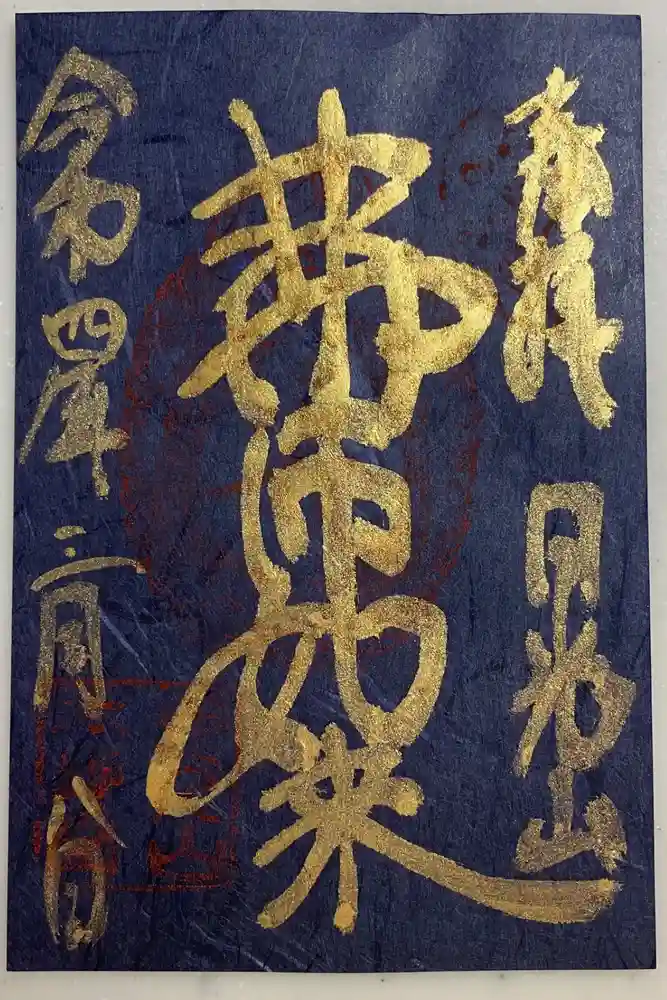 奉拝 日 山
薬師如来
令和四年三月八日